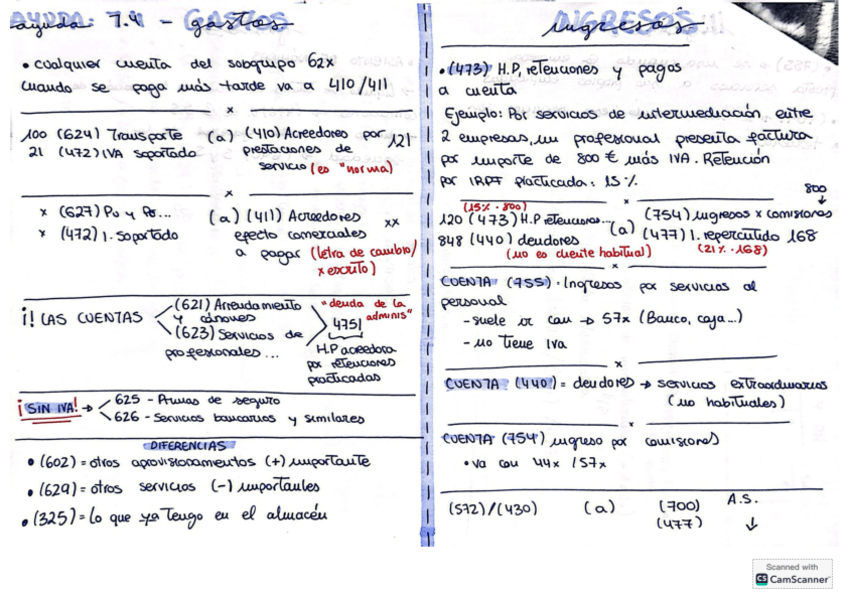 ayuda: 7.4 - Gastos
• cualquier cuenta del subgrupo 62x
cuando se paga más tarde va a 410/411
x
100 (624) Transporte (a) (410) Acreedores por 121
21 (472) IVA soportado prestaciones de
servicio (es "norma)
x
x (627) Pu y Po... (a) (411) Acreedores xx
x (472) I. Soportado efecto comerciales
a pagar (letra de cambio/
x escrito)
¡! LAS CUENTAS
(621) Arrendamiento
y cánones
(623) Servicios de
profesionales ...
"deuda de la
adminis"
4751
H.P acreedora
por retenciones
practicadas
¡SIN IVA! →
625 - Primas de seguro
626 - Servicios bancarios y similares
DIFERENCIAS
• (602) = otros aprovisionamientos (+) importante
• (629) = otros servicios (-) importantes
• (325) = Lo que ya tengo en el almacén
INGRESOS
ingresos
• (473) H.P, retenciones y pagos
a cuenta
Ejemplo: Por servicios de intermediación entre
2 empresas, un profesional presenta factura
por importe de 800 € más IVA. Retención
por IRPF practicada: 15%
x
800
↓
(15% · 800)
120 (473) H.P retenciones... (a) (754) ingresos x comisiones
848 (440) deudores (477) I. repercutido 168
(no es cliente habitual) (21% · 168)
x
CUENTA (755) · Ingresos por servicios al
personal
- suele ir con → 57x (Banco, caja...)
- no tiene iva
x
CUENTA (440) = deudores → servicios extraordinarios
(no habituales)
x
CUENTA (754) ingreso por comisiones
• va con 44x / 57x
(572)/(430) (a) (700) A.S.
(477) ↓
Scanned with
CS CamScanner